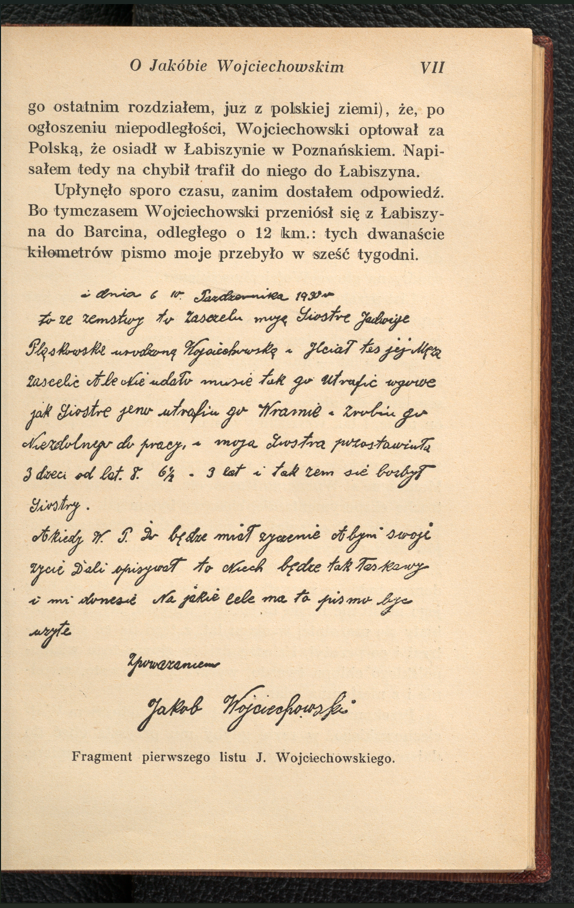 O Jakóbie Wojciechowskim VII
go ostatnim rozdziałem, juz z polskiej ziemi), że, po
ogłoszeniu niepodległości, Wojciechowski optował za
Polską, że osiadł w Łabiszynie w Poznańskiem. Napi-
sałem tedy na chybił trafił do niego do Łabiszyna.
Upłynęło sporo czasu, zanim dostałem odpowiedź.
Bo tymczasem Wojciechowski przeniósł się z Łabiszy-
na do Barcina, odległego o 12 km.: tych dwanaście
kilometrów pismo moje przebyło w sześć tygodni.
i dnia 6 w Pazdzernika
to ze zemstwy to Zasczelu moją Siostre Jadwige
Pląskowske urodzoną Wojciechowską i Hciał tes jej Męza
Zascelic Ale Nie udało musie tak go Utrafić wgowe
jak Siostre jeno utrafiu go W Ramie i zrobiu go
Niezdolnego do pracy, i moja Siostra pozostawiuła
3 dzeci od lat. 8. 6½ - 3 lat i tak zem sie bozbył
Siostry.
A kiedy W. P. Dr będze miał zyczenie Abym swoje
zycie Dali opisywał to Niech będze tak Łaskawy
i mi donesie Na jakie cele ma to pismo byc
uzyte
Zpowazaniem
Jakob Wojciechowski
Fragment pierwszego listu J. Wojciechowskiego.